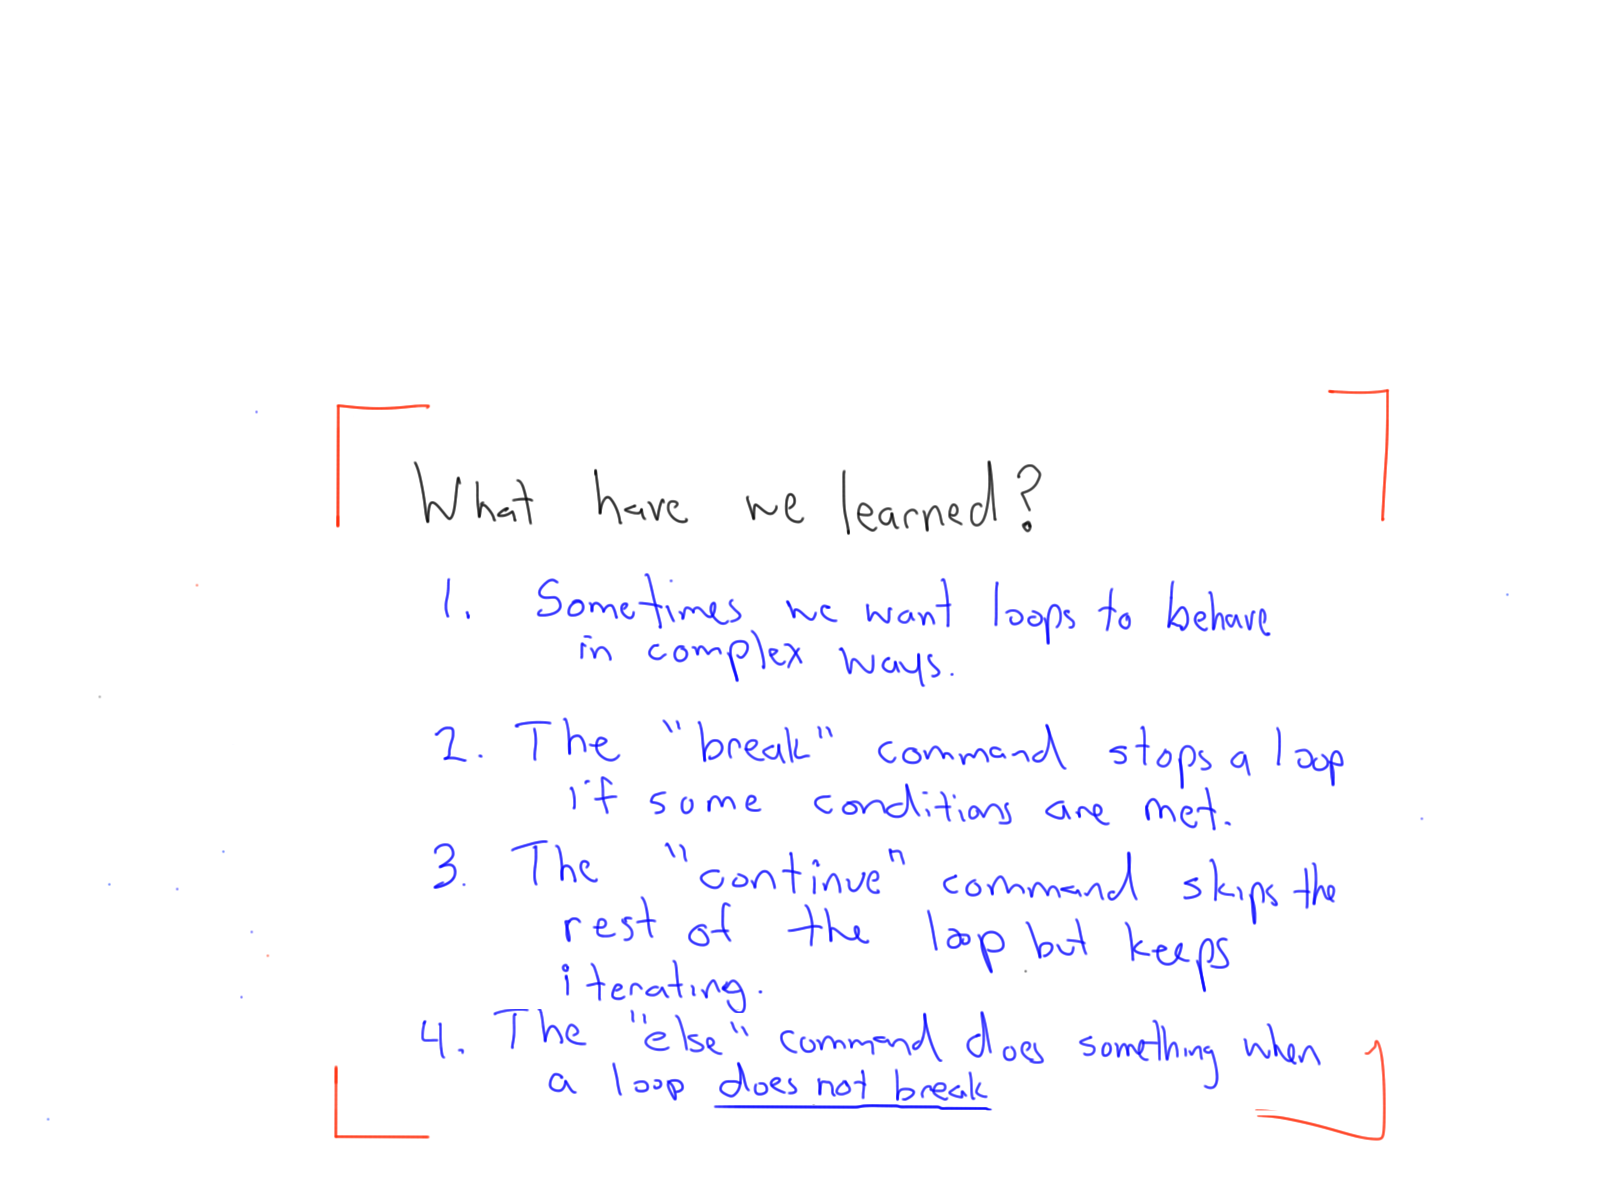 What have we learned?
1. Sometimes we want loops to behave
in complex ways.
2. The "break" command stops a loop
if some conditions are met.
3. The "continue" command skips the
rest of the loop but keeps
iterating.
4. The "else" command does something when
a loop does not break